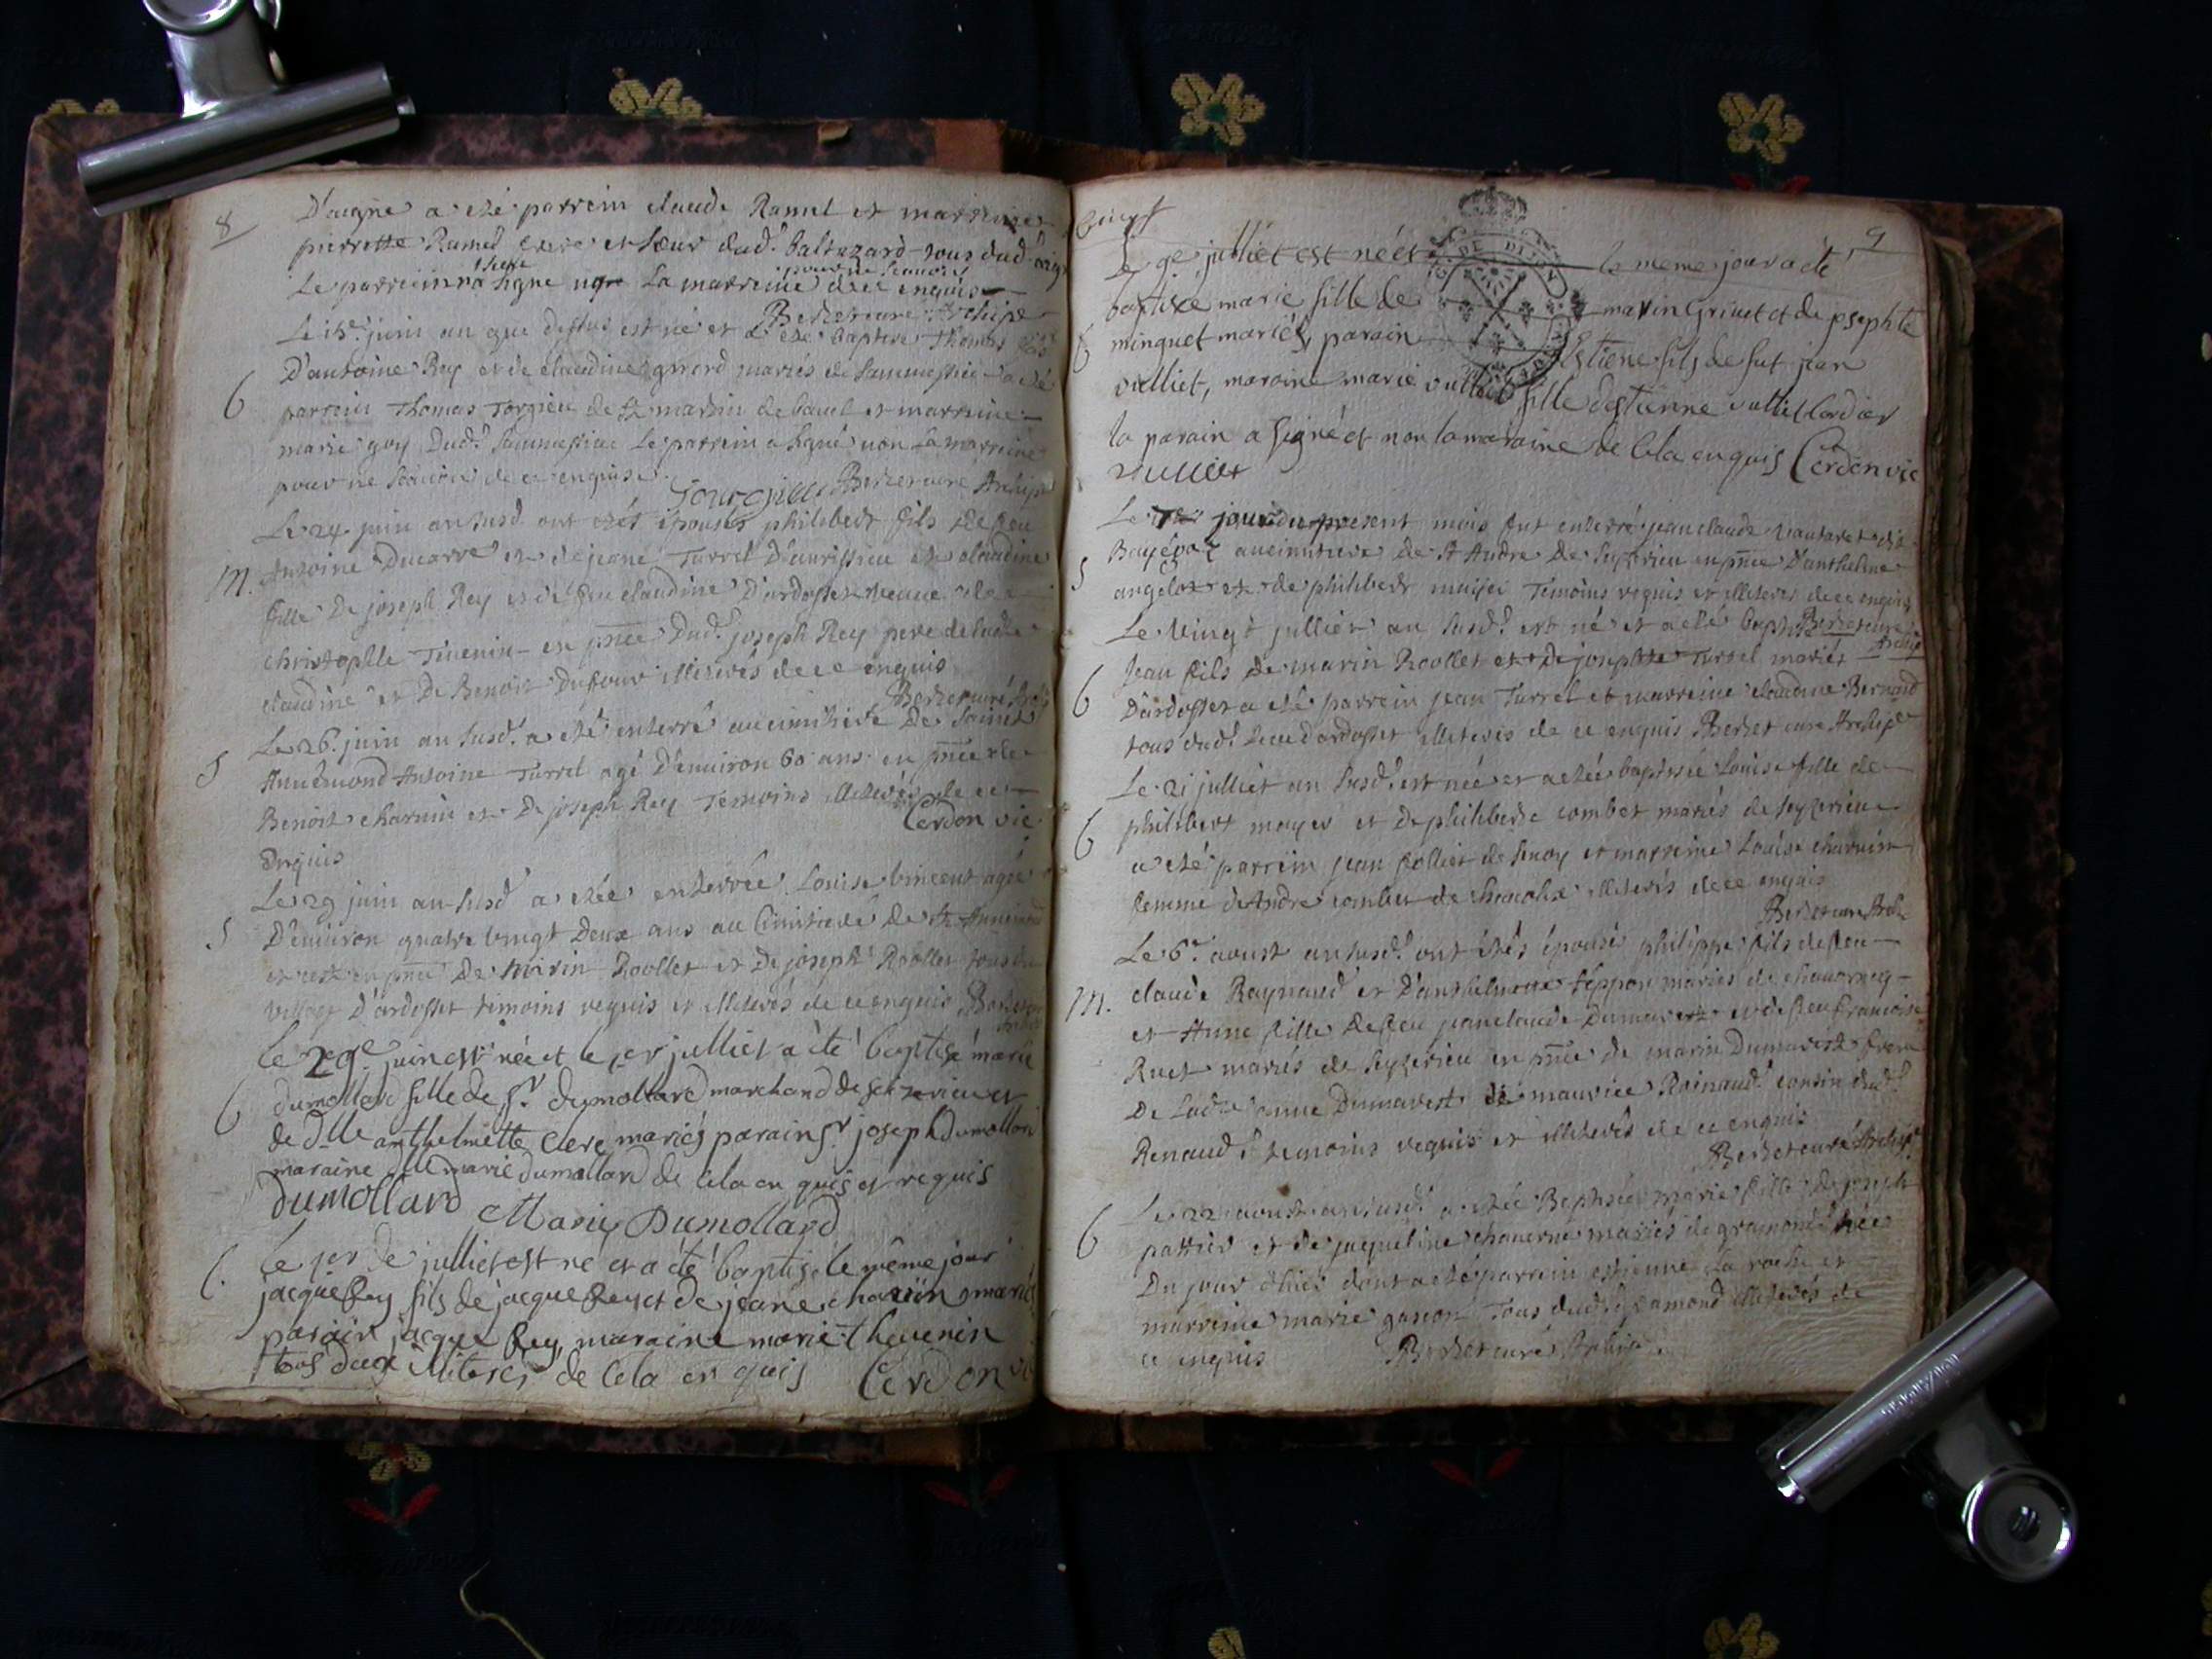 8
D'aigne a été parrein claude Ramel et marreine
pierrette Ramel frere et sœur dud.t baltazard tous dud.
Le parrein n'a signé La marreine de ce enquis
pour ne scavoir
Le 15.e juin an que dessus est né et a été baptisé Thomas fils
Berzet curé Archip.
6
D'antoine Rey et de claudine girord mariés de Sammessieu a été
parrein Thomas Torgieu de St martin de bavel et marreine
marie goy Dud.t Sammessieu Le parrein a signé non La marreine
pour ne scavoir de ce enquise
Berzet curé Archip
Le 24 juin an susd. ont étés épousés philibert fils de feu
M. Antoine Ducarre et de jeane Turrel D'aurissieu et claudine
fille De joseph Rey et de feu claudine D'ardosset veuve de
christophle Tevenin en pnce Dud.t joseph Rey pere de lad.te
claudine et De Benoit Dufour illiterés de ce enquis
Berzet curé Arch
Le 26. juin an susd.t a été enterré au cimitiere De Saint
S
Annemond Antoine Turrel agé D'environ 60 ans en pnce de
Benoit charvin et De joseph Rey Temoins illiterés de ce
Cerdon vic
Enquis
Le 29 juin an susd.t a étée enterrée Louise vincent agée
S
D'environ quatre vingt Deux ans au Cimitiere De St Annemond
et en pnce De Marin Roollet et De joseph Roollet tous du
village D'ardosset temoins requis et illiterés de ce enquis Berzet
le 29e juin est née et le 1er julliet a été baptisé marie
6
dumollard fille de Sr. dumollard marchand de seizerieu et
de dlle anthelmette clerc mariés parain Sr joseph dumollard
maraine dlle marie dumollard de cela en quis et requis
dumollard Marie Dumollard
6. Le 1er de julliet est né et a été baptisé le même jour
jacque Rey fils de jacque Rey et de jeane charvin mariés
parain jacque Rey, maraine marie thevenin
tos deux illiterés de cela en quis Cerdon vic
9
Le 9e julliet est née et le meme jour a été
baptisée marie fille de marin Grinet et de josephte
6
minguet mariés, parain Estiene fils de fut jean
vulliet, maraine marie vulliet fille d'estienne vulliet Cordier
la parain a signé et non la maraine de Cela enquis Cerdon vic
vulliet
Le jour du present mois fut enterré jean claude
S
au cimitiere De St Andre De Seyzerieu en pnce D'anthelme
angelot et de philibert muisei Temoins requis et illiterés de ce enquis
Le Vingt julliet an susd.t est né et a été baptisé
Berzet curé
Archip
6
Jean fils De marin Roollet et De josephte Turrel mariés
D'ardosset a été parrein jean Turrel et marreine claudine Bernard
tous dud.t lieu d'ardosset illiterés de ce enquis Berzet curé Archip.
Le 21 julliet an susd.t est née et a étée baptisée Louise fille de
6
philibert mayer et De philiberte combet mariés de seyzerieu
a été parrein jean folliet de senoy et marreine Louise charvin
femme d'Andre combet de illiterés de ce enquis
Berzet curé Arch.
Le 6.e aoust an susd.t ont étés épousés philippe fils de feu
M. claude Raynaud et D'anthelmette teppon mariés de chavornay
et Anne fille de feu jean claude Dumarest et de feu francoise
Ruet mariés de Seyzerieu en pnce de marin Dumarest frere
De Lad.te anne Dumarest de maurice Rainaud cousin dud.t
Renaud temoins requis et illiterés de ce enquis
Berzet curé Archip.
Le 22 aoust an susd.t a étée Baptisée marie fille de joseph
6
pattier et de jacqueline chanerne mariés de gramond née
Du jour d'hier dont a été parrein estienne La roche et
marreine marie gascon Tous dud.t gramond illiterés de
ce enquis Berzet curé Archip.